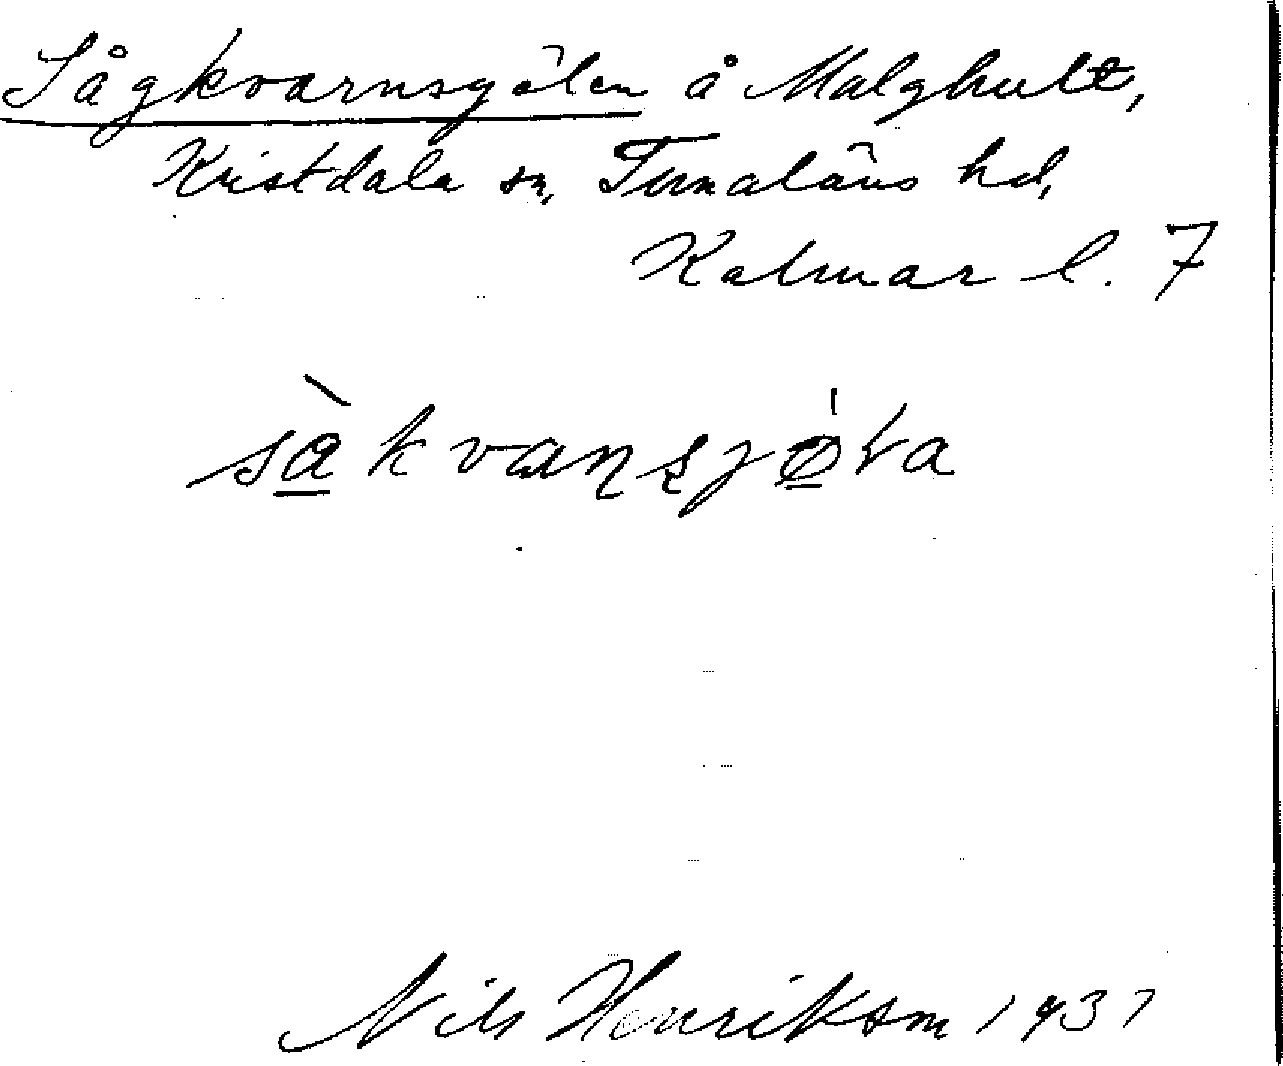 Sågkvarnsgölen å Malghult,
Kristdala sn, Tunaläns hd,
Kalmar l. 7
sàkvaṇṣjøla
Nils Henriksson 1937